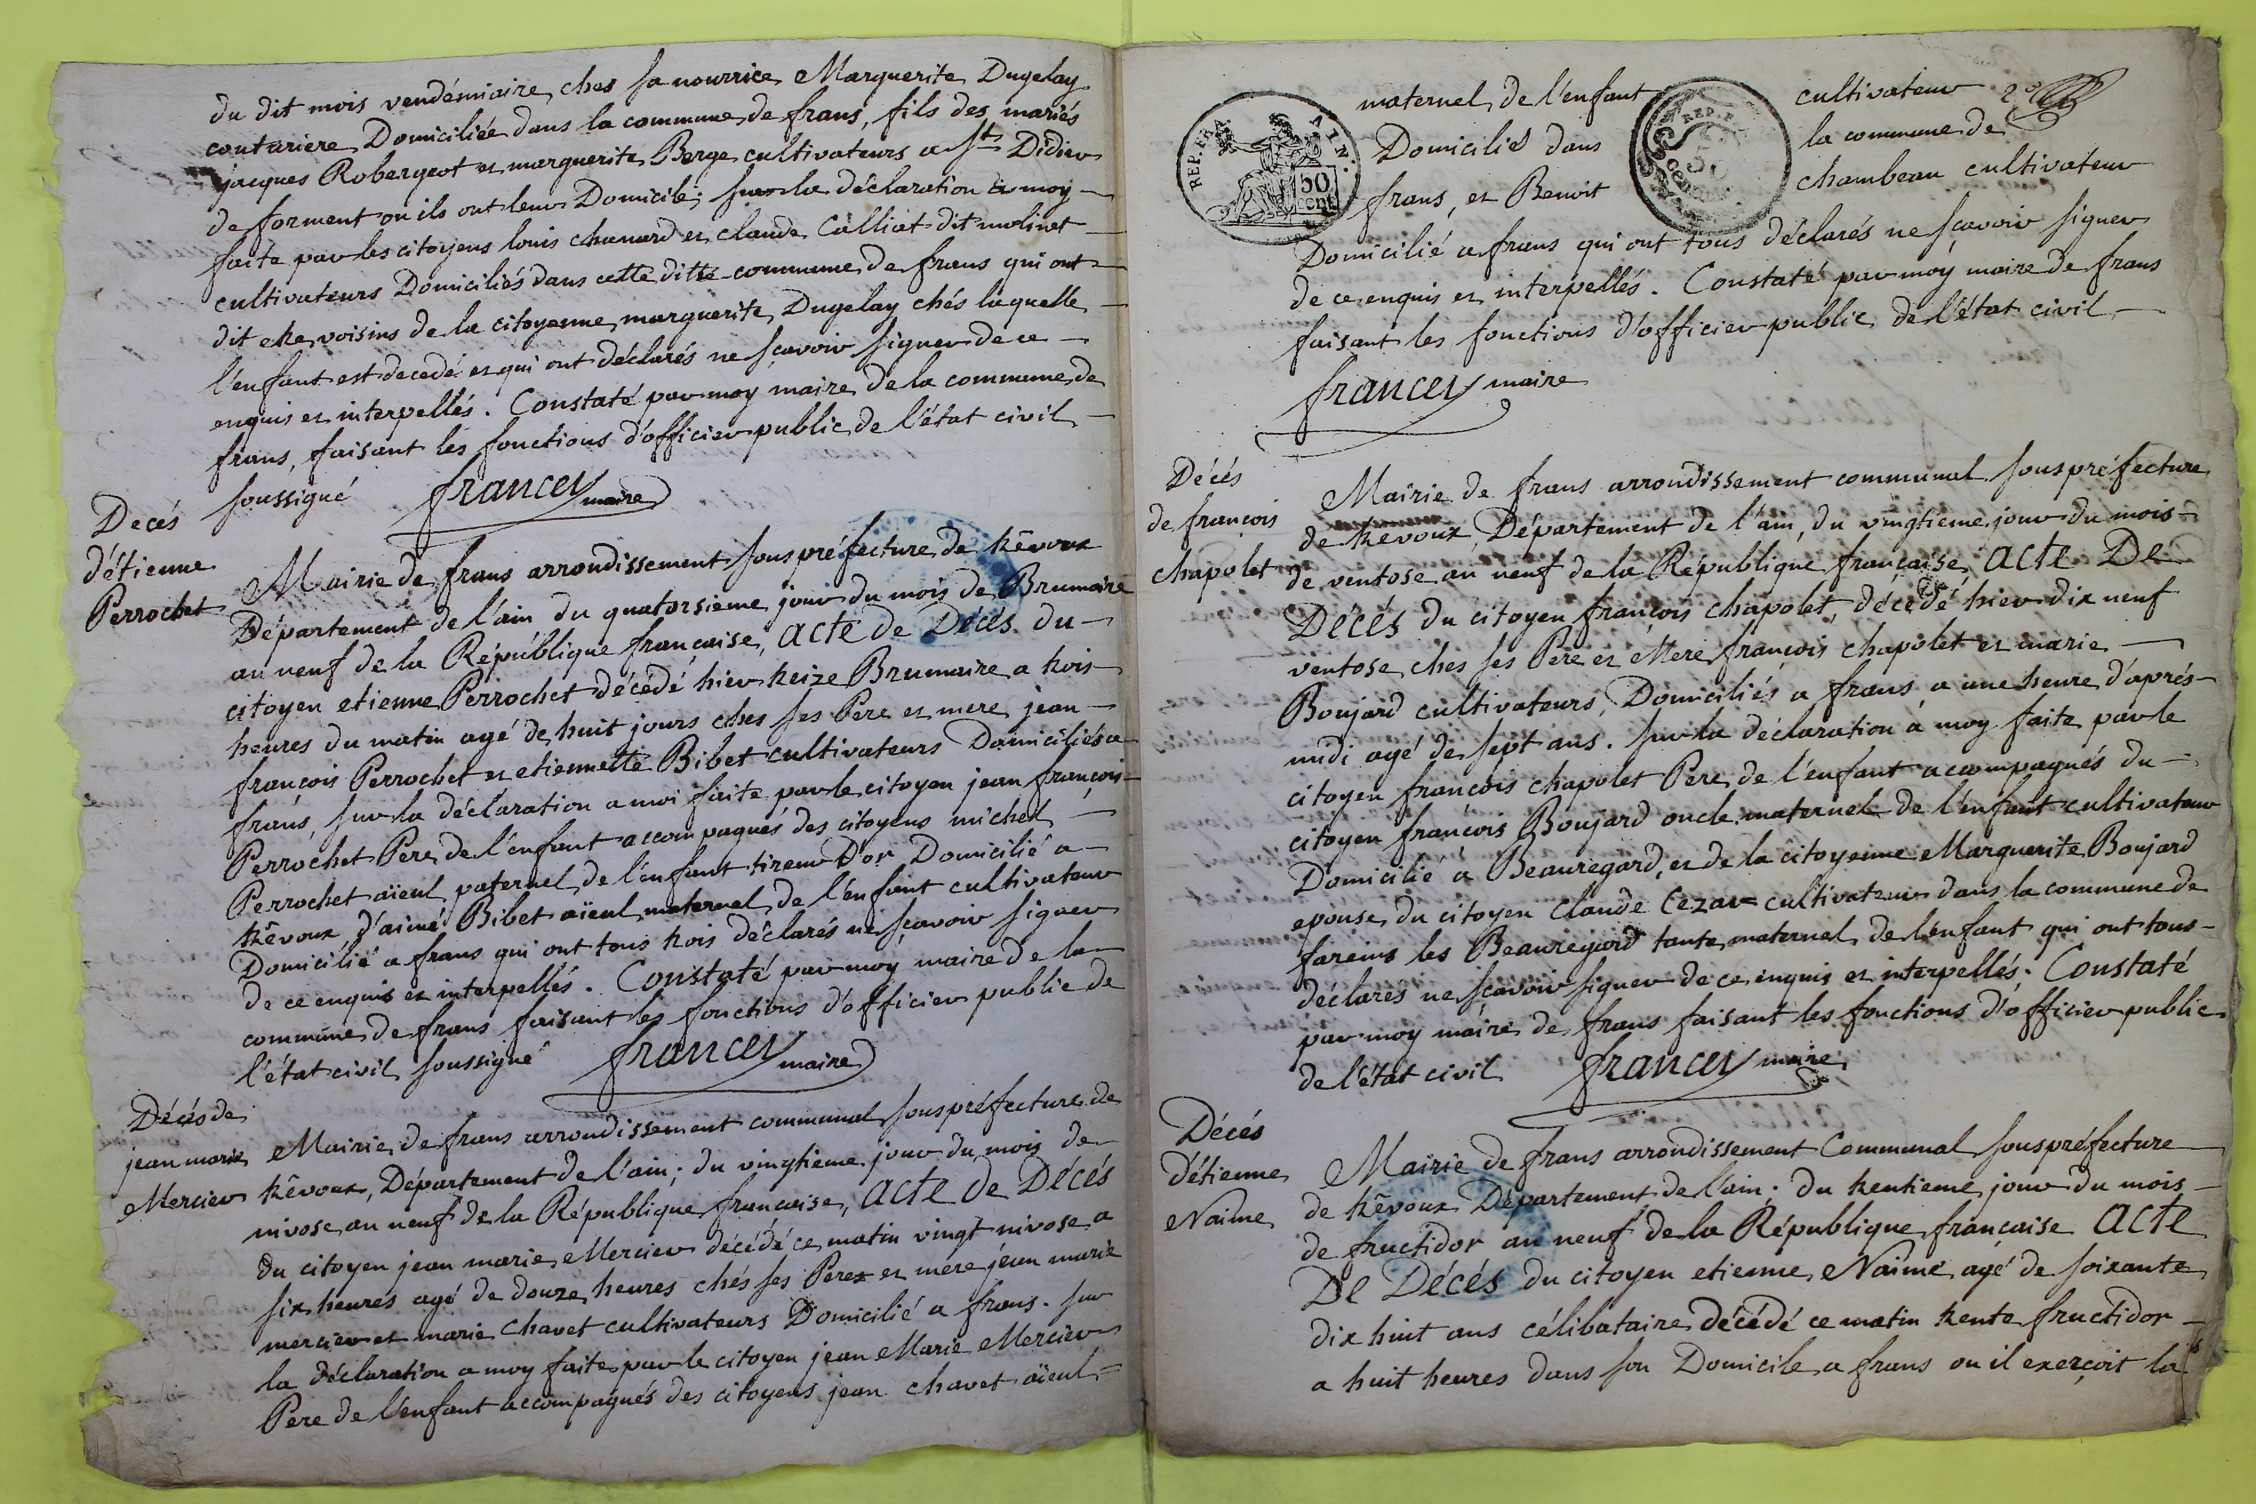 du dit mois vendémiaire, ches sa nourrice Marguerite Dugelay
couturiere Domiciliée dans la commune de frans, fils des mariés
jacques Robergeot et marguerite Berge cultivateurs a St Didier
de forment ou ils ont leur Domicile; sur la déclaration a moy
faite par les citoyens louis chanard et claude Calliat dit molinet
cultivateurs Domiciliés dans cette ditte commune de frans qui ont
dit etre voisins de la citoyenne marguerite Dugelay chés laquelle
l'enfant est decedé et qui ont déclarés ne sçavoir signer de ce
enquis et interpellés. Constaté par moy maire de la commune de
frans, faisant les fonctions d'officier public de l'état civil
soussigné francey maire
Decés
d'étienne
Perrochet
Mairie de frans arrondissement souspréfecture de trévoux
Département de l'ain du quatorsieme jour du mois de Brumaire
an neuf de la République française, acte de Décés du
citoyen etienne Perrochet décédé hier treize Brumaire a trois
heures du matin agé de huit jours ches ses Pere et mere jean
françois Perrochet et etiennette Bibet cultivateurs Domiciliés a
frans, sur la déclaration a moi faite par le citoyen jean françois
Perrochet Pere de l'enfant accompagnés des citoyens michel
Perrochet aïeul paternel de l'enfant tireur D'or Domicilié a
trévoux d'aimé Bibet aïeul maternel de l'enfant cultivateur
Domicilié a frans qui ont tous trois déclarés ne sçavoir signer
de ce enquis et interpellés. Constaté par moy maire de la
commune de frans faisant les fonctions d'officier public de
l'état civil soussigné francey maire
Décés de
jean marie
Mercier
Mairie de frans arrondissement communal souspréfecture de
trévoux, Département de l'ain; du vingtieme jour du mois de
nivose an neuf de la République française, acte de Décés
du citoyen jean marie Mercier décédé ce matin vingt nivose a
six heures agé de douze heures chés ses Peres et mere jean marie
mercier et marie chavet cultivateurs Domicilié a frans. sur
la déclaration a moy faite par le citoyen jean Marie Mercier
Pere de l'enfant accompagnés des citoyens jean chavet aïeul
REP. FRA. ATN.
50
cent
REP. F.
50
maternel de l'enfant cultivateur
Domiciliés dans la commune de
frans, et Benoit chambeau cultivateur
Domicilié a frans qui ont tous déclarés ne sçavoir signer
de ce enquis et interpellés. Constaté par moy maire de frans
faisant les fonctions d'officier public de l'état civil
francey maire
Décés
de françois
chapolet
Mairie de frans arrondissement communal souspréfecture
de trevoux Département de l'ain, du vingtieme jour du mois
de ventose an neuf de la République française, acte De
Décés du citoyen françois chapolet, décédé hier dix neuf
ventose ches ses Pere et Mere françois chapolet et marie
Boujard cultivateurs, Domiciliés a frans a une heure d'aprés
midi agé de sept ans. sur la déclaration à moy faite par le
citoyen françois chapolet Pere de l'enfant accompagnés du
citoyen françois Boujard oncle maternel de l'enfant cultivateur
Domicilié a Beauregard, et de la citoyenne Marguerite Boujard
epouse du citoyen Claude Cezar cultivateur dans la commune de
fareins les Beauregard tante maternel de l'enfant qui ont tous
déclares ne sçavoir signer de ce enquis et interpellés. Constaté
par moy maire de frans faisant les fonctions d'officier public
de l'état civil francey maire
Décés
d'étienne
Naime
Mairie de frans arrondissement Communal souspréfecture
de trévoux Département de l'ain; du trentieme jour du mois
de fructidor an neuf de la République française Acte
De Décés du citoyen etienne Naime agé de soixante
dix huit ans célibataire décédé ce matin trente fructidor
a huit heures dans son Domicile a frans ou il exerçoit la